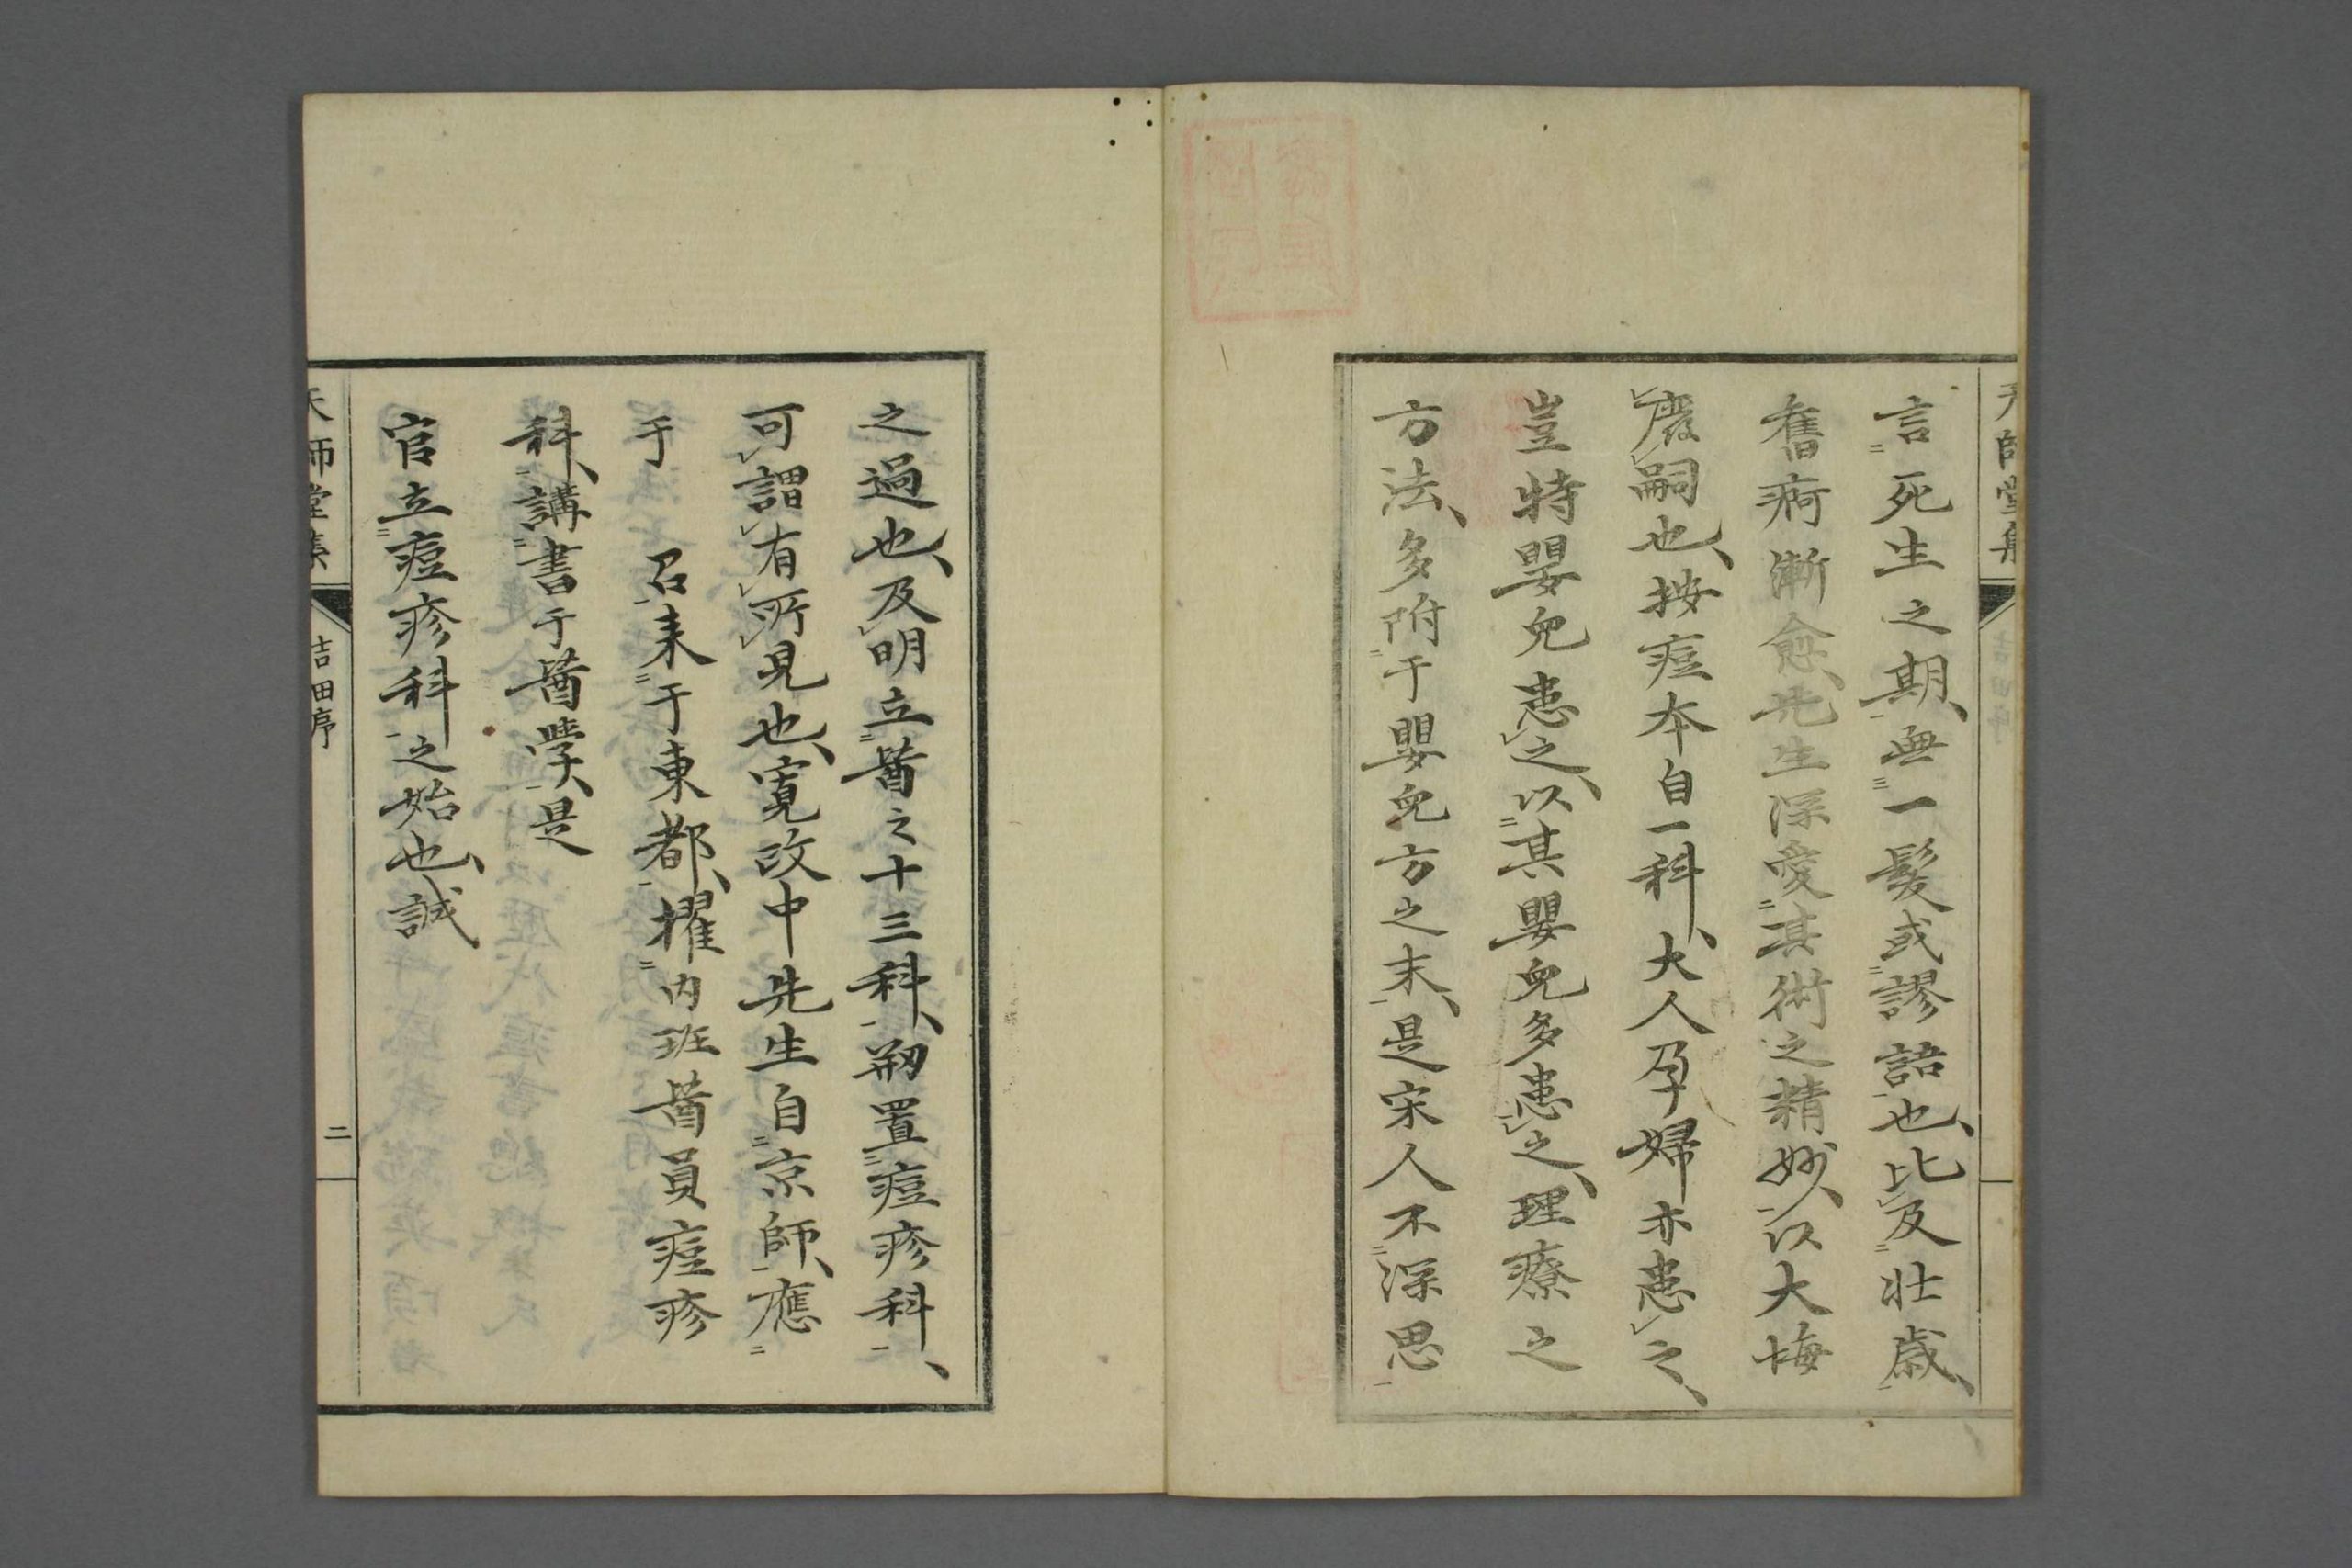 言死生之期、無一髮或謬語也、比及壯歲、
舊痾漸愈、先生深愛其術之精妙、以大悔
廢嗣也、按痘本自一科、大人孕婦亦患之、
豈特嬰兒患之、以其嬰兒多患之、理療之
方法、多附于嬰兒方之末、是宋人不深思
之過也、及明立醫之十三科、剏置痘疹科、
可謂有所見也、寬政中先生自京師、應
于　召来于東都、擢内班醫員痘疹
科、講書于醫學、是
官立痘疹科之始也、誠
天師堂集
吉田序
二